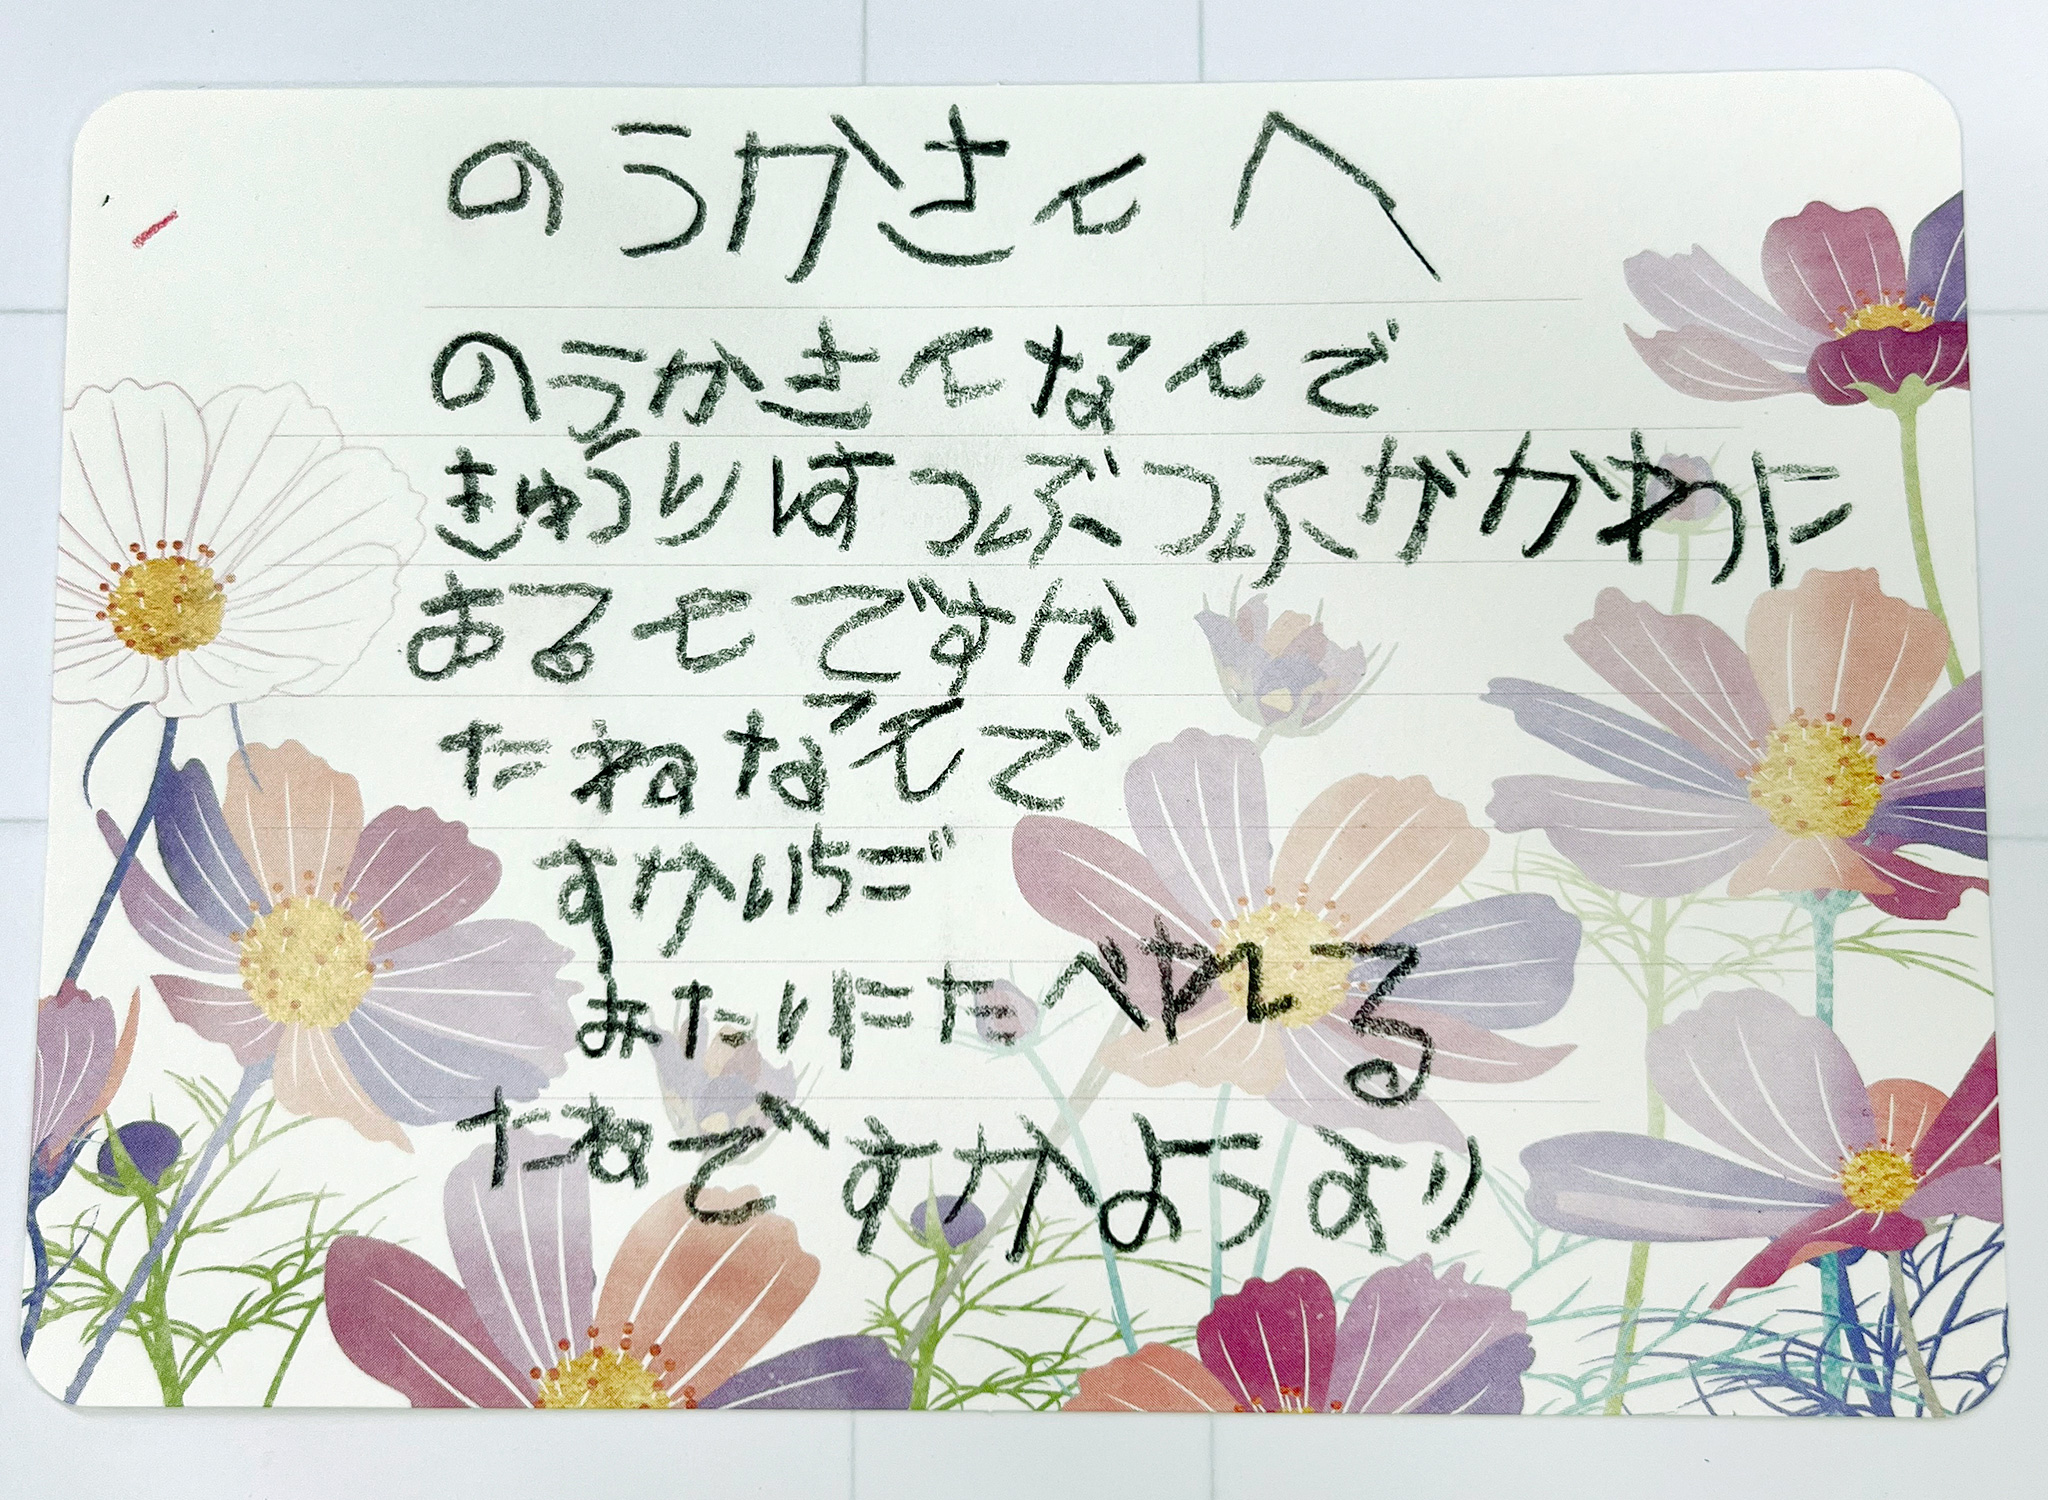 のうかさんへ
のうかさんなんで
きゅうりはつぶつぶがかわに
あるんですか
たねなんで
すかいちご
みたいにたべれる
たねですかようより